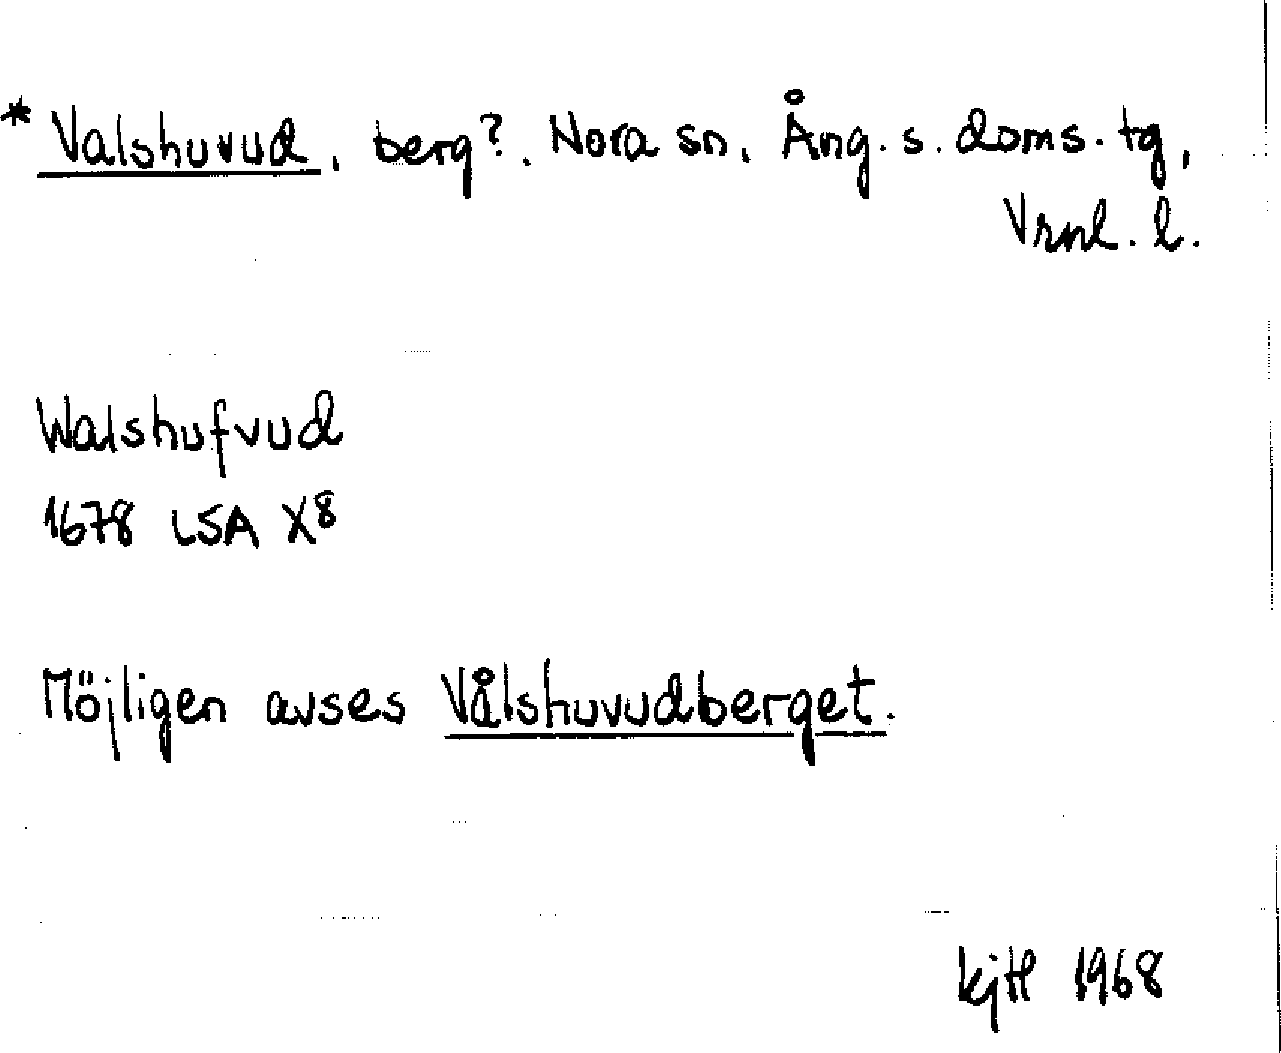 * Valshuvud, berg?. Nora sn, Ång. s. doms. tg,
Vrnl. l.
Walshufvud
1678 LSA X8
Möjligen avses Vålshuvudberget.
1968